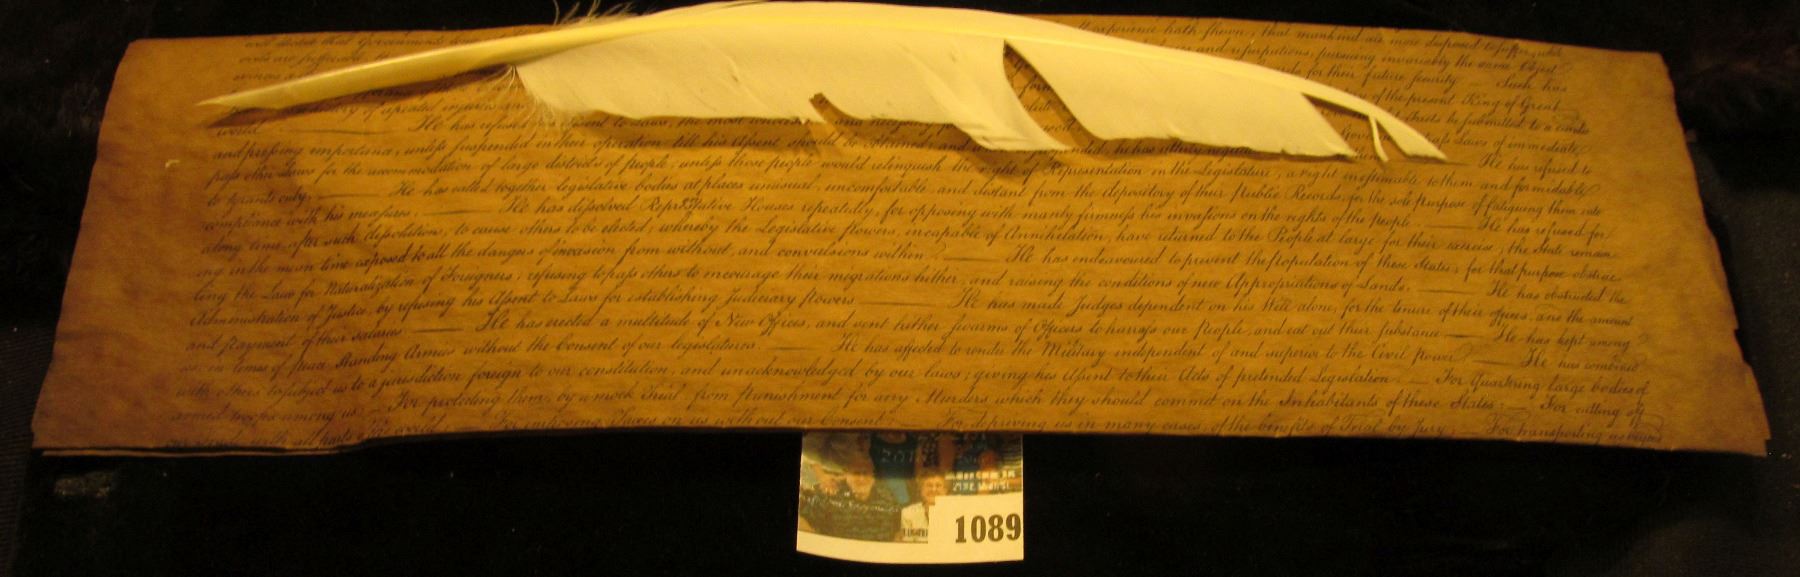 experience hath shewn, that mankind are more disposed to suffer, while
and usurpations, pursuing invariably the same Object
for their future security — Such has
of the present King of Great
of repeated injuries and
Facts be submitted to a candid
world. — He has refused
pass Laws of immediate
and pressing importance, unless suspended in their operation till his Assent should be obtained; and
ended, he has
— He has refused to
pass other Laws for the accommodation of large districts of people, unless those people would relinquish the right of Representation in the Legislature, a right inestimable to them and formidable
to tyrants only. — He has called together legislative bodies at places unusual, uncomfortable, and distant from the depository of their Public Records, for the sole purpose of fatiguing them into
compliance with his measures. — He has dissolved Representative Houses repeatedly, for opposing with manly firmness his invasions on the rights of the people. — He has refused for
a long time, after such dissolutions, to cause others to be elected; whereby the Legislative powers, incapable of Annihilation, have returned to the People at large for their exercise; the State remain-
ing in the mean time exposed to all the dangers of invasion from without, and convulsions within. — He has endeavoured to prevent the population of these States; for that purpose obstruc-
ting the Laws for Naturalization of Foreigners; refusing to pass others to encourage their migrations hither, and raising the conditions of new Appropriations of Lands. — He has obstructed the
Administration of Justice, by refusing his Assent to Laws for establishing Judiciary powers — He has made Judges dependent on his Will alone, for the tenure of their offices, and the amount
and payment of their salaries — He has erected a multitude of New Offices, and sent hither swarms of Officers to harrass our People, and eat out their substance — He has kept among
us, in times of peace, Standing Armies without the Consent of our legislatures. — He has affected to render the Military independent of and superior to the Civil power — He has combined
with others to subject us to a jurisdiction foreign to our constitution, and unacknowledged by our laws; giving his Assent to their Acts of pretended Legislation — For Quartering large bodies of
armed troops among us: — For protecting them, by a mock Trial, from Punishment for any Murders which they should commit on the Inhabitants of these States: — For cutting off
our Trade with all parts of the world — For imposing Taxes on us without our Consent: — For depriving us in many cases, of the benefits of Trial by Jury: — For transporting us beyond
1089